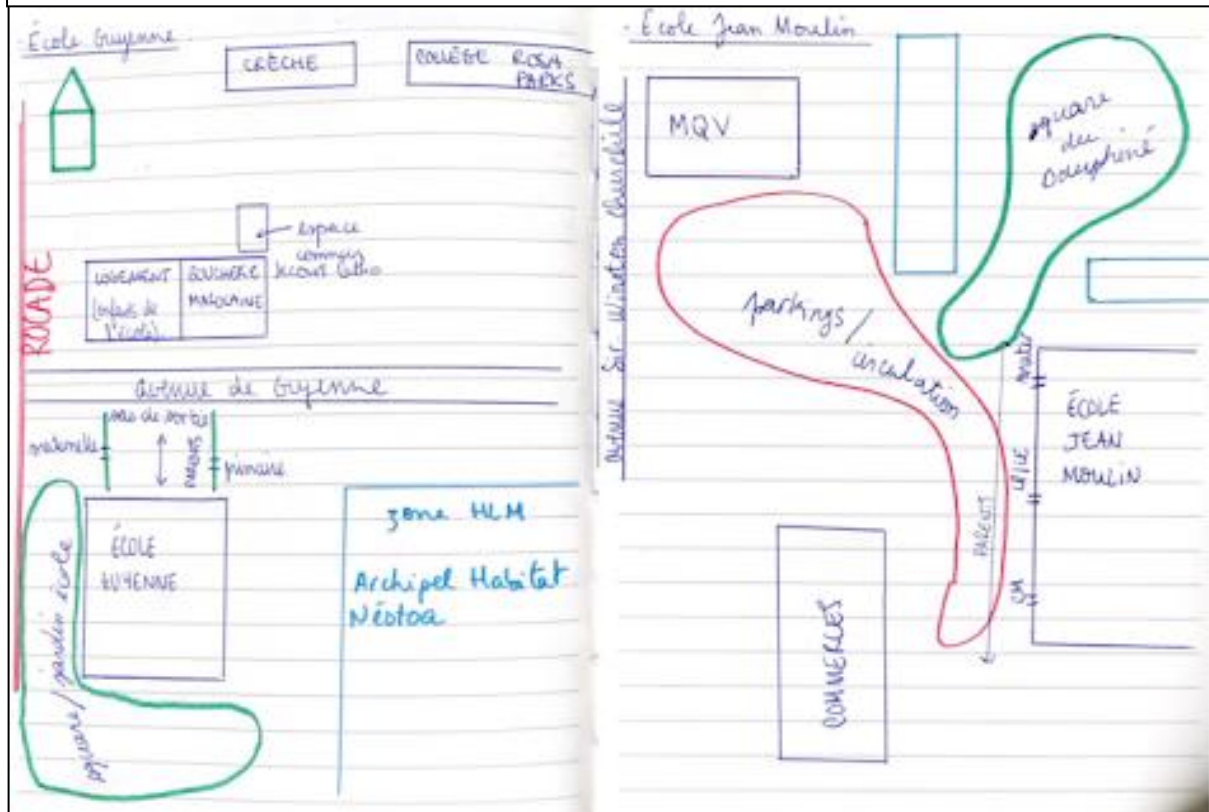 - École Guyenne
CRÈCHE
COLLÈGE ROSA
PARKS
espace
LOGEMENT
(enfants de
l'école)
BOUCHERIE
ROCADE
avenue de Guyenne
sas de sortie
maternelle
PARENTS
primaire
ÉCOLE
GUYENNE
square/jardin école
zone HLM
Archipel Habitat
Néotoa
- École Jean Moulin
MQV
avenue Sir Winston Churchill
square
du
Dauphiné
parkings/
circulation
mater
CP/CE
CM
PARENTS
ÉCOLE
JEAN
MOULIN
COMMERCES